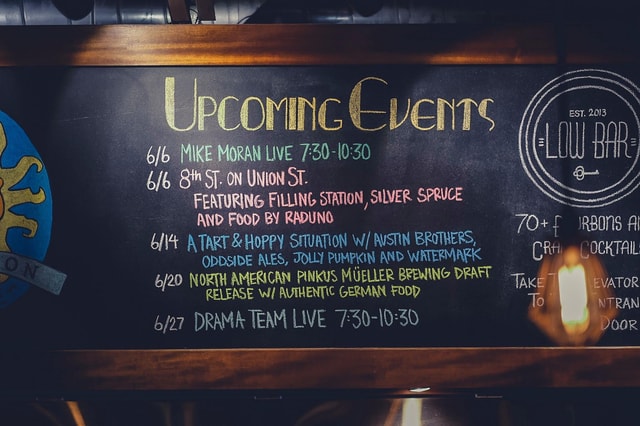 UPCOMING EVENTS
6/6 MIKE MORAN LIVE 7:30-10:30
6/6 8th ST. ON UNION ST.
FEATURING FILLING STATION, SILVER SPRUCE
AND FOOD BY RADUNO
6/14 A TART & HOPPY SITUATION W/ AUSTIN BROTHERS,
ODDSIDE ALES, JOLLY PUMPKIN AND WATERMARK
6/20 NORTH AMERICAN PINKUS MÜELLER BREWING DRAFT
RELEASE W/ AUTHENTIC GERMAN FOOD
6/27 DRAMA TEAM LIVE 7:30-10:30
ON
EST. 2013
LOW BAR
70+
TAKE
TO
DOOR